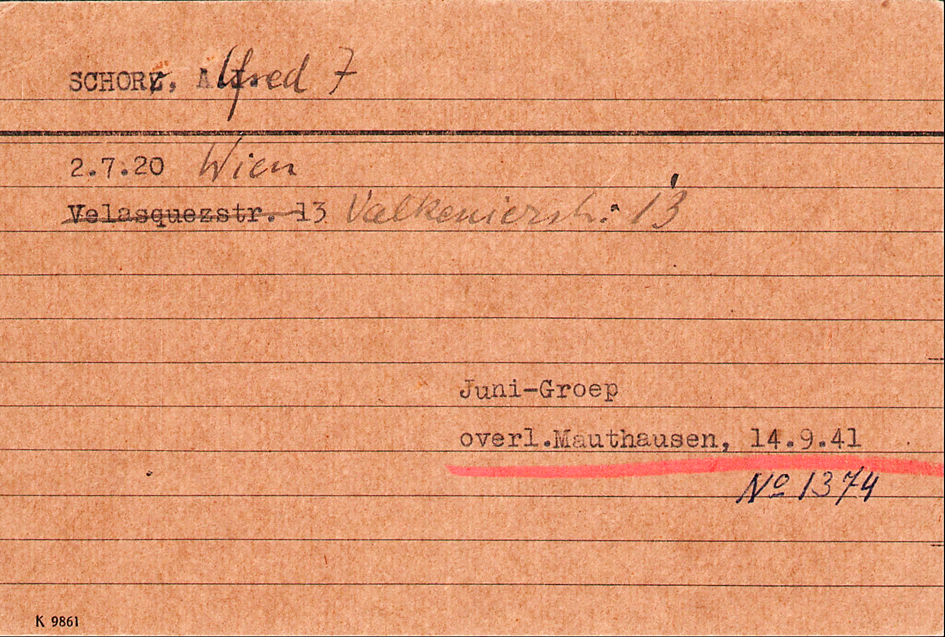 SCHORR, Alfred 7
2.7.20 Wien
Velasquezstr. 13 Valkenierstr. 13
Juni-Groep
overl.Mauthausen, 14.9.41
No 1374
K 9861